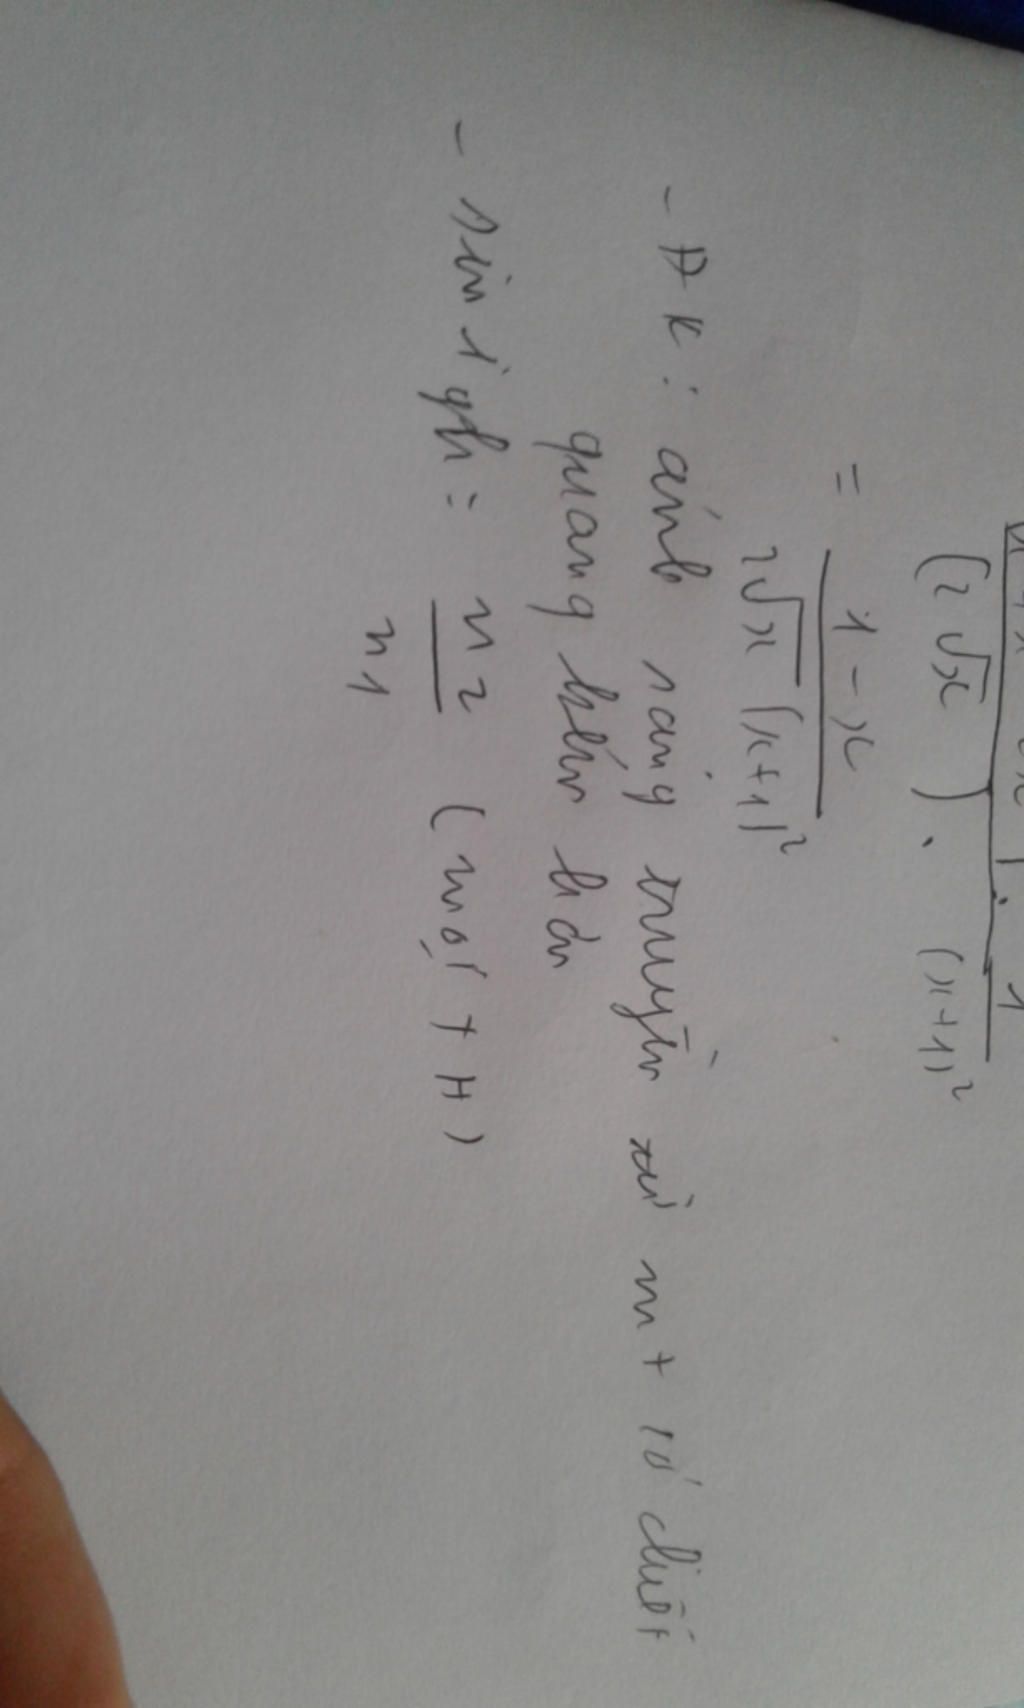 1
(2√x) . (x+1)²
= 1-x
2√x (x+1)²
- ĐK: ánh sáng truyền từ mt có chiết
quang kém hơn
- sin igh = n2 (mọi TH)
n1